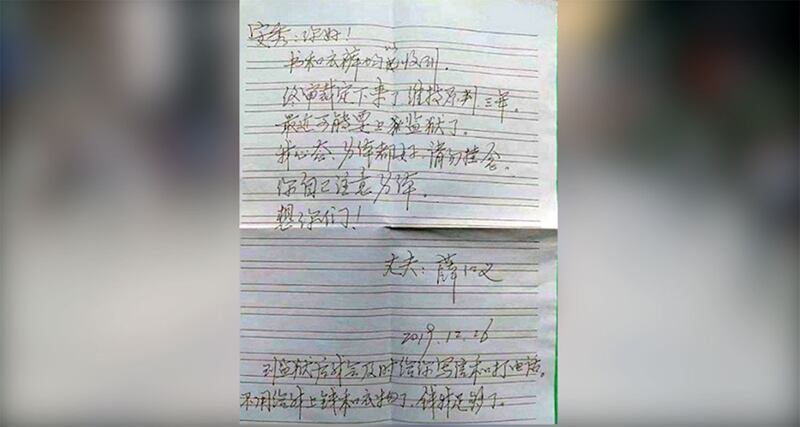 安秀:你好!
书和衣裤均已收到。
终审裁定下来了维持原判三年。
最近可能要上往监狱了。
我心态、身体都好,请勿挂念。
你自己注意身体。
想你们!
丈夫:薛仁义
2019.12.26
到监狱后我会及时给你写信和打电话。
不用给我上钱和衣物了,钱我足够了。